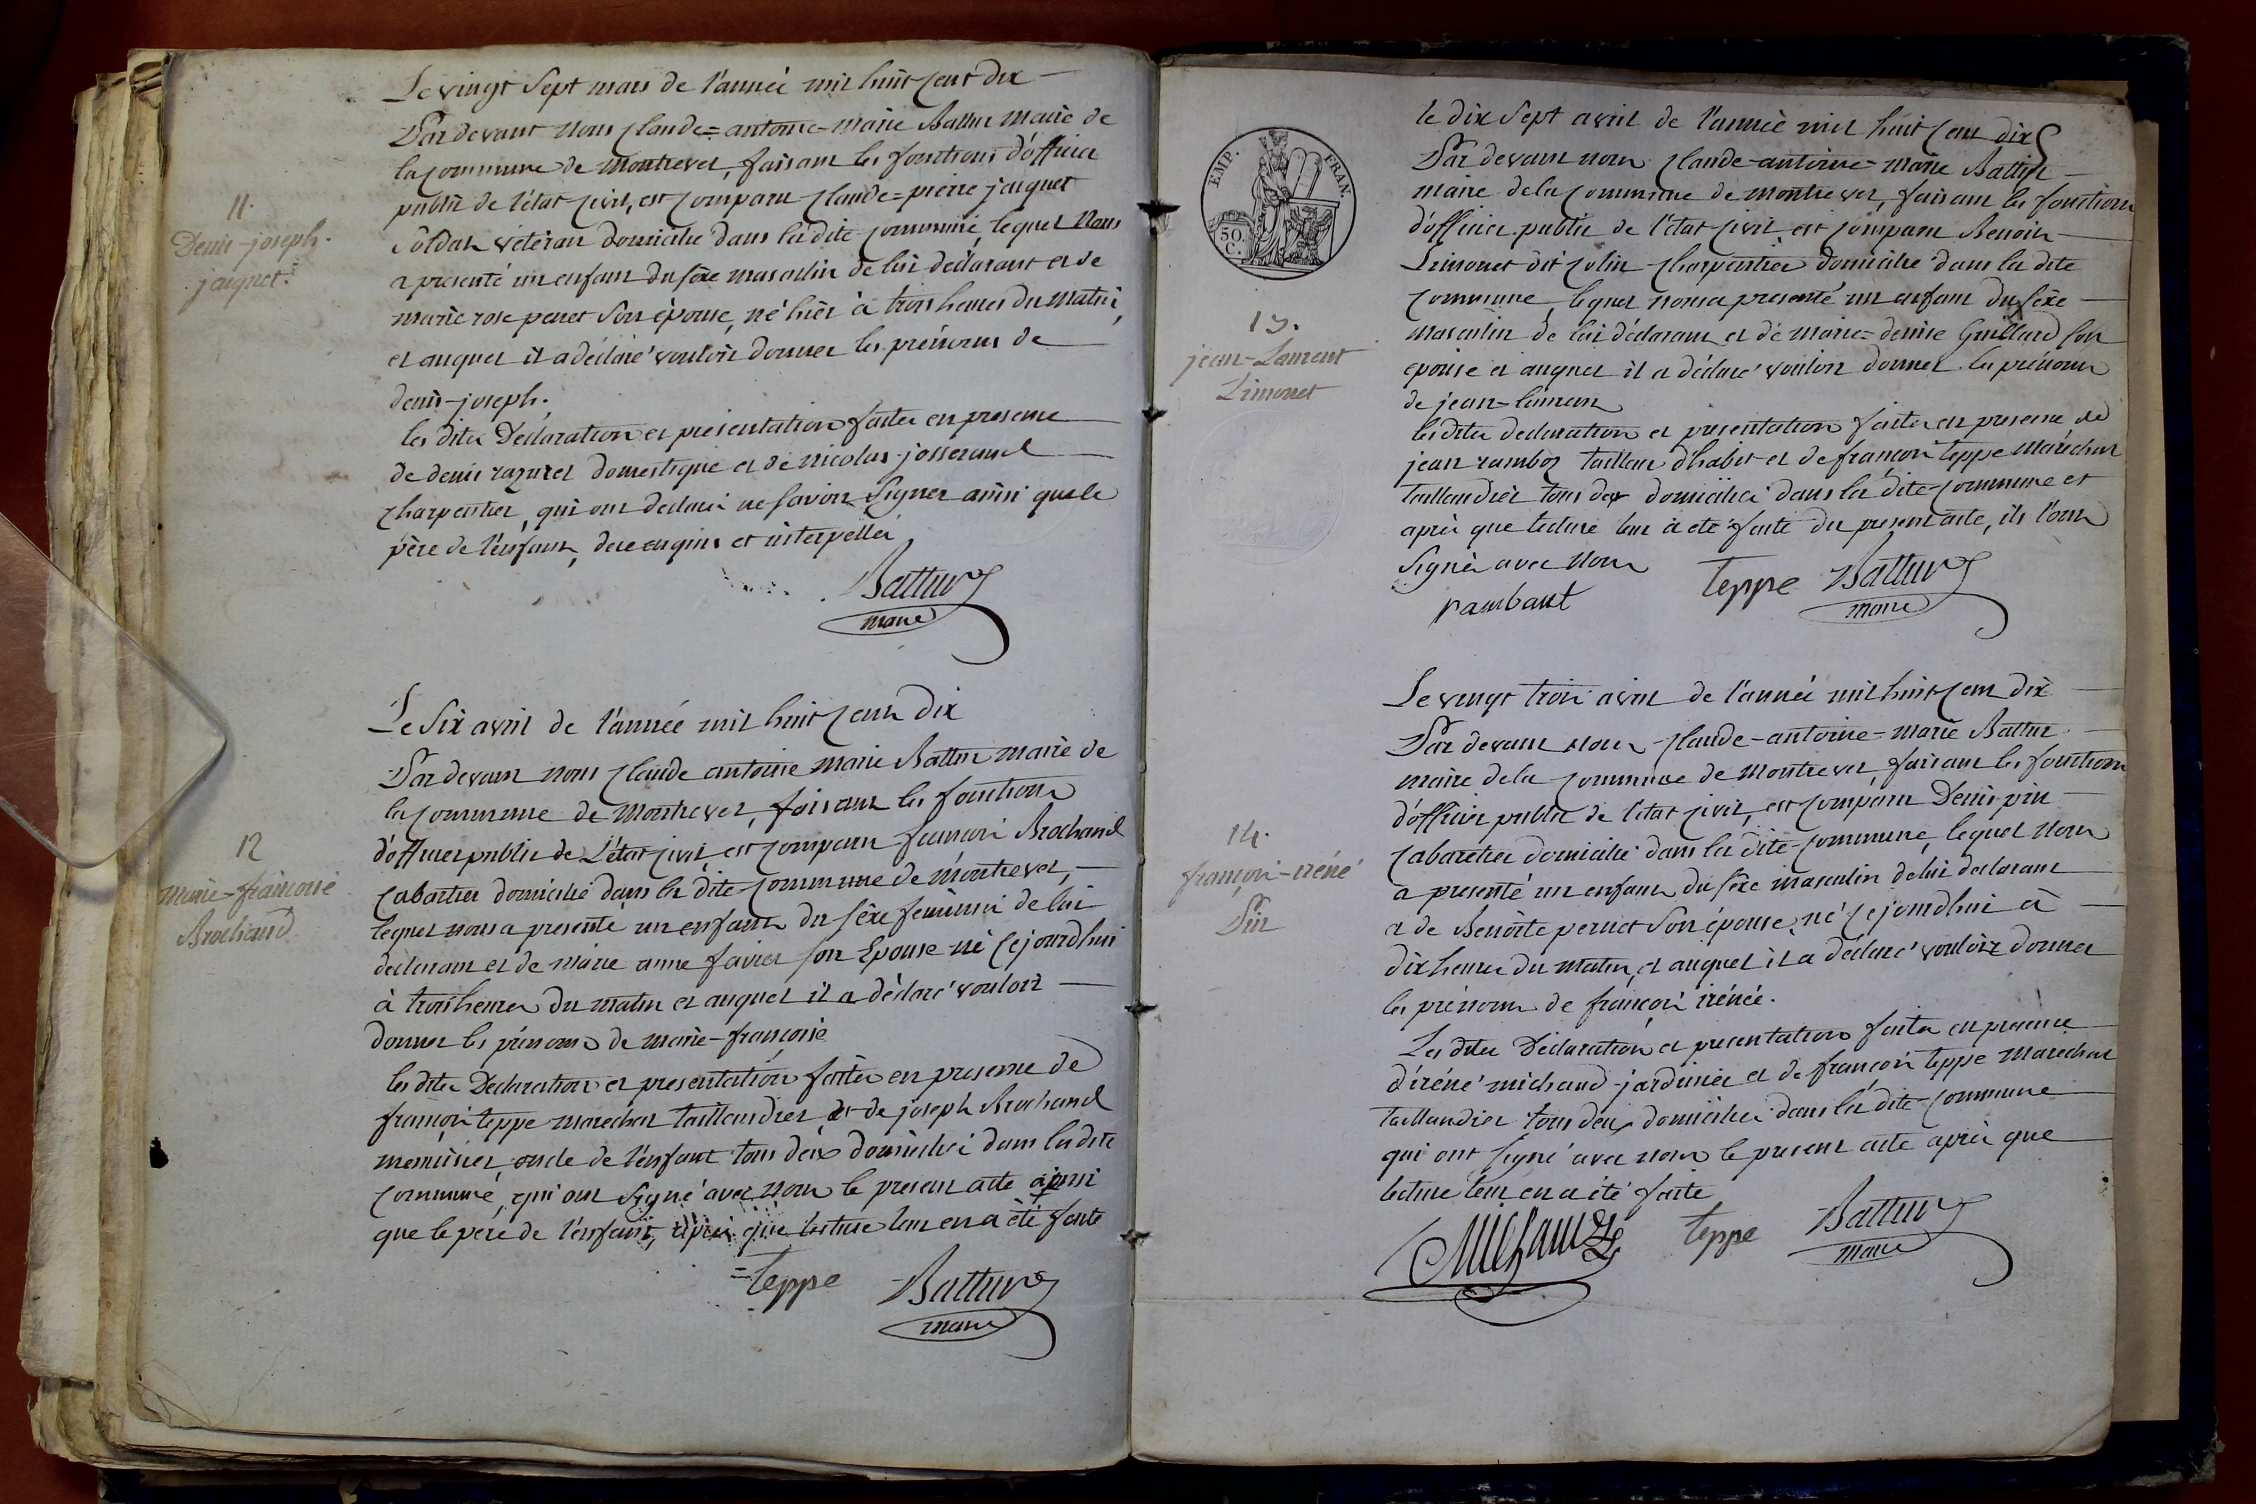 Le vingt Sept mars de l'année mil huit cent dix
Par devant nous Claude=antoine-marie Battur maire de
la commune de Montrevel, faisant les fonctions d'officier
public de l'état civil, est comparu Claude=pierre jaiquet
Soldat vétéran domicilié dans la dite commune, lequel Nous
a presenté un enfant du sèxe masculin de lui déclarant et de
marie rose perret Son épouse, né hier à trois heures du matin,
et auquel il a déclaré vouloir donner les prénoms de
denis-joseph.
les dites Declaration et présentation faites en presence
de denis razurel domestique et de nicolas josserand
charpentier, qui ont déclaré ne savoir Signer ainsi que le
père de l'enfant, de ce enquis et interpellés
Battur
maire
11.
Denis-joseph.
jaiquet.
Le Six avril de l'année mil huit cent dix
Par devant nous Claude antoine Marie Battur maire de
la commune de Montrevel, faisant les fonctions
d'officier public de L'état civil, est comparu françois Brochand
Cabartier domicilié dans la dite commune de montrevel,
lequel nous a presenté un enfant du sèxe feminin de lui
declarant et de marie anne favier son Epouse né cejourdhui
à trois heures du matin et auquel il a déclaré vouloir
donner les prénoms de marie-françoise
les dites Declaration et presentation faites en presence de
françois teppe marechal taillandier, et de joseph Brochand
menuisier, oncle de l'enfant tous deux domiciliés dans la dite
commune, qui ont Signé avec nous le present acte ainsi
que le pere de l'enfant, après que lecture leur en a été faite
Teppe Battur
maire
12
marie-françoise
Brochand
EMP. FRAN.
50.
C.
le dix Sept avril de l'année mil huit cent dix
Par devant nous Claude-antoine-marie Battur
maire de la commune de Montrevel, faisant les fonctions
d'officier public de l'état civil est comparu Benoit
Limonet dit colin charpentier domicilié dans la dite
commune, lequel nous a presenté un enfant du sèxe
masculin de lui déclarant et de marie=denise Guillard son
epouse et auquel il a déclaré vouloir donner les prénoms
de jean-laurent
les dites declaration et presentation faites en presence de
jean ramboz tailleur d'habit et de françois teppe maréchal
taillandier tous deux domiciliés dans la dite commune et
après que lecture leur a eté faite du present acte, ils l'ont
Signés avec Nous
rambaut Teppe Battur
maire
13.
jean-Laurent
Limonet
Le vingt trois avril de l'année mil huit cent dix
Par devant nous Claude-antoine-marie Battur
maire de la commune de Montrevel, faisant les fonctions
d'officier public de l'état civil, est comparu Denis pin
Cabaretier domicilié dans la dite commune, lequel nous
a presenté un enfant du sèxe masculin de lui declarant
et de Benoîte pernet Son épouse, né cejourdhui à
dix heures du matin, et auquel il a déclaré vouloir donner
les prénoms de françois irénée.
Les dites Declaration et presentation faites en presence
d'iréné michaud jardinier et de françois teppe marechal
taillandier tous deux domiciliés dans la dite commune
qui ont signé avec nous le present acte après que
lecture leur en a été faite
Michaud Teppe Battur
maire
14.
françois-iréné
Pin